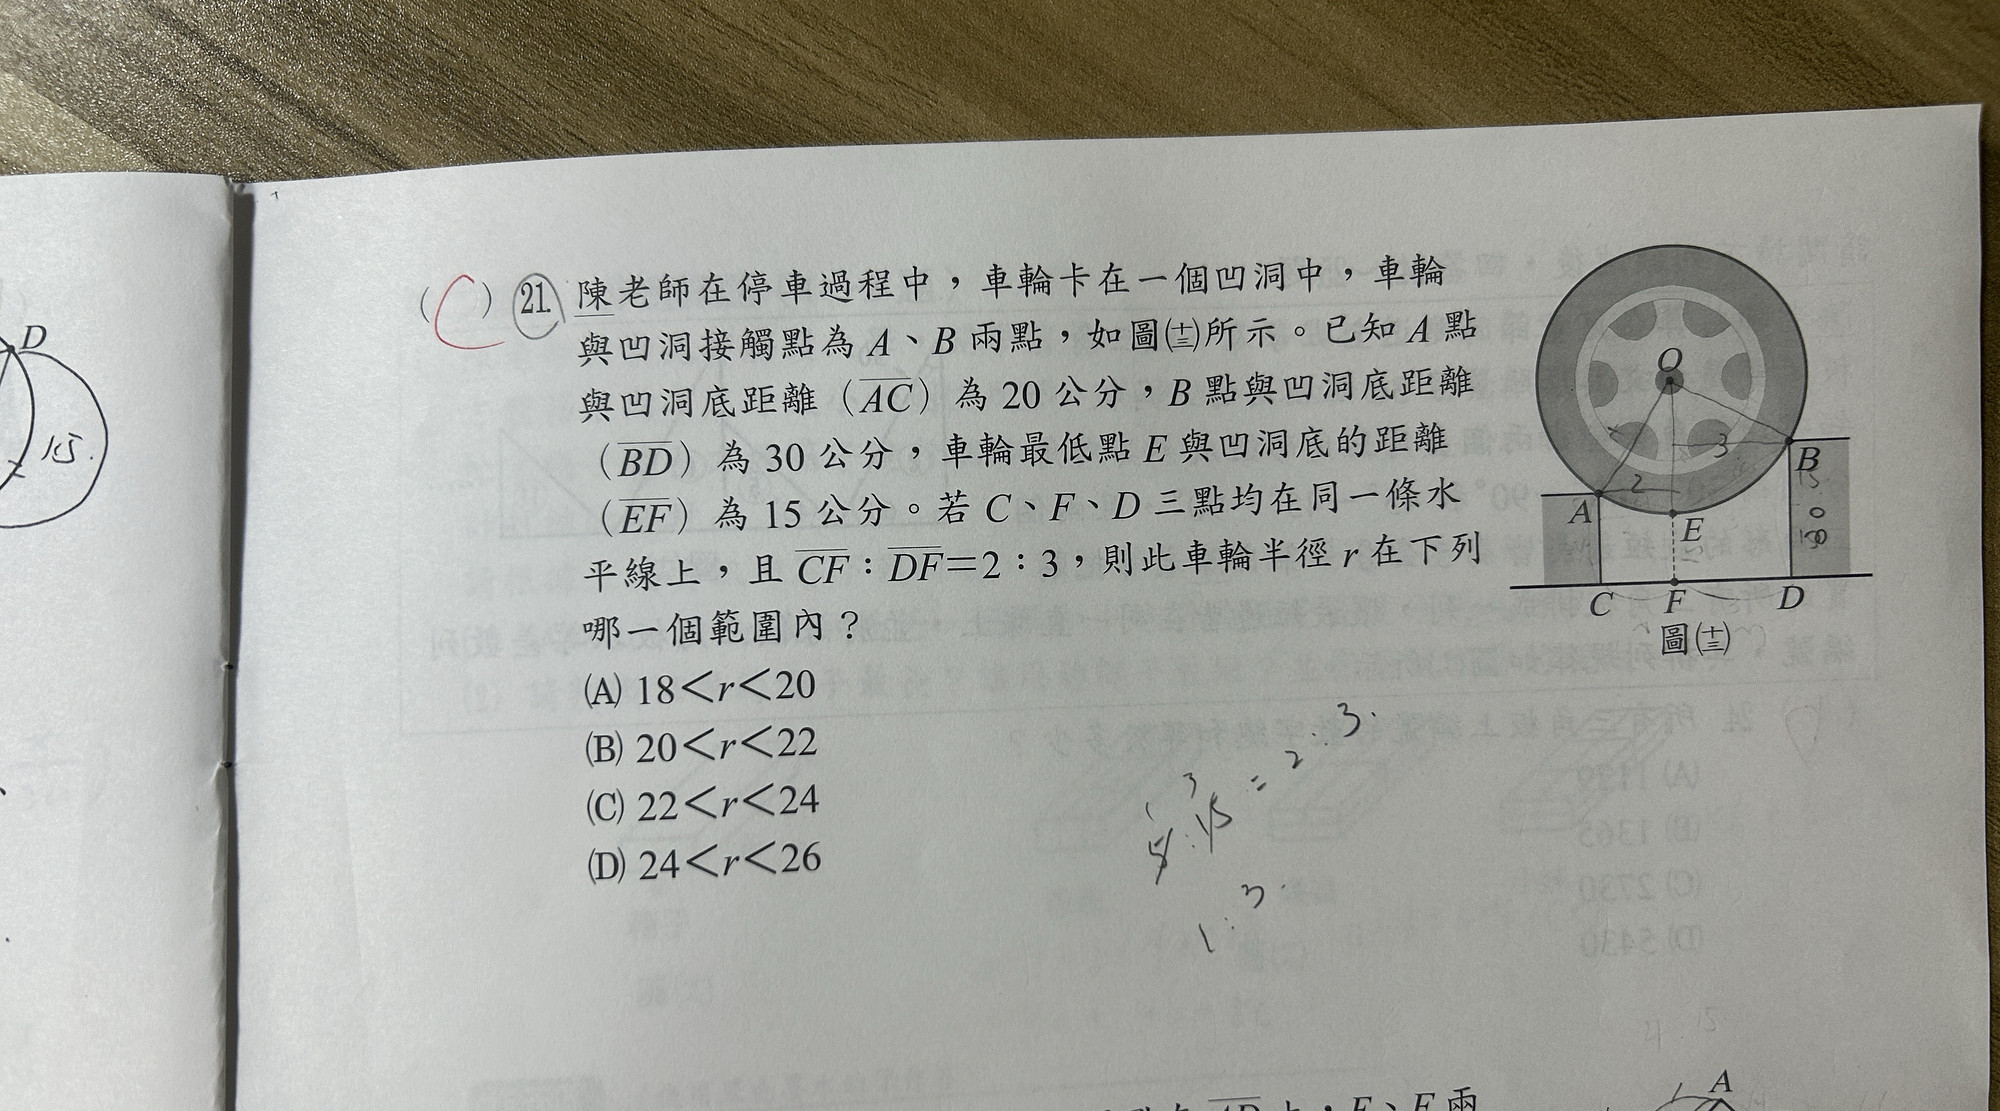 (C) 21. 陳老師在停車過程中，車輪卡在一個凹洞中，車輪
與凹洞接觸點為 A、B 兩點，如圖㈩㈢所示。已知 A 點
與凹洞底距離（AC）為 20 公分，B 點與凹洞底距離
（BD）為 30 公分，車輪最低點 E 與凹洞底的距離
（EF）為 15 公分。若 C、F、D 三點均在同一條水
平線上，且 CF：DF＝2：3，則此車輪半徑 r 在下列
哪一個範圍內？
(A) 18＜r＜20
(B) 20＜r＜22
(C) 22＜r＜24
(D) 24＜r＜26
O
3
2
A
B
15
E
C
F
D
圖(十三)
1 3
5:15=2:3.
1:3.
D
15.
A